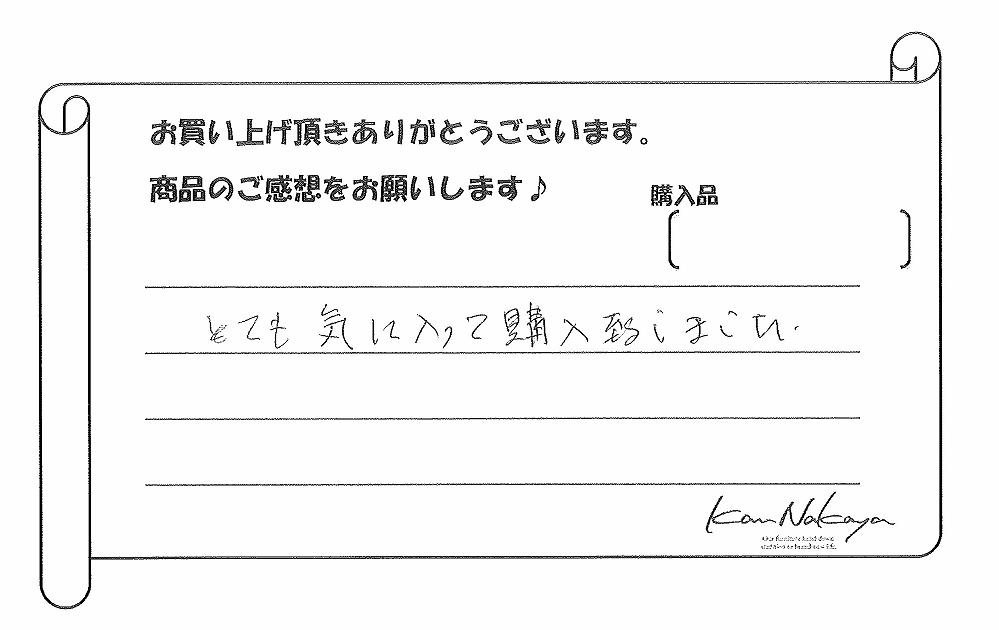 お買い上げ頂きありがとうございます。
商品のご感想をお願いします♪
購入品
とても気に入って購入致しました.
Kan Nakaya
Our furniture hand down